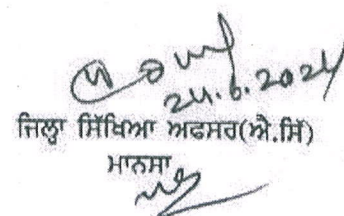 24.6.2024
ਜਿਲ੍ਹਾ ਸਿੱਖਿਆ ਅਫਸਰ(ਐ.ਸਿੱ)
ਮਾਨਸਾ